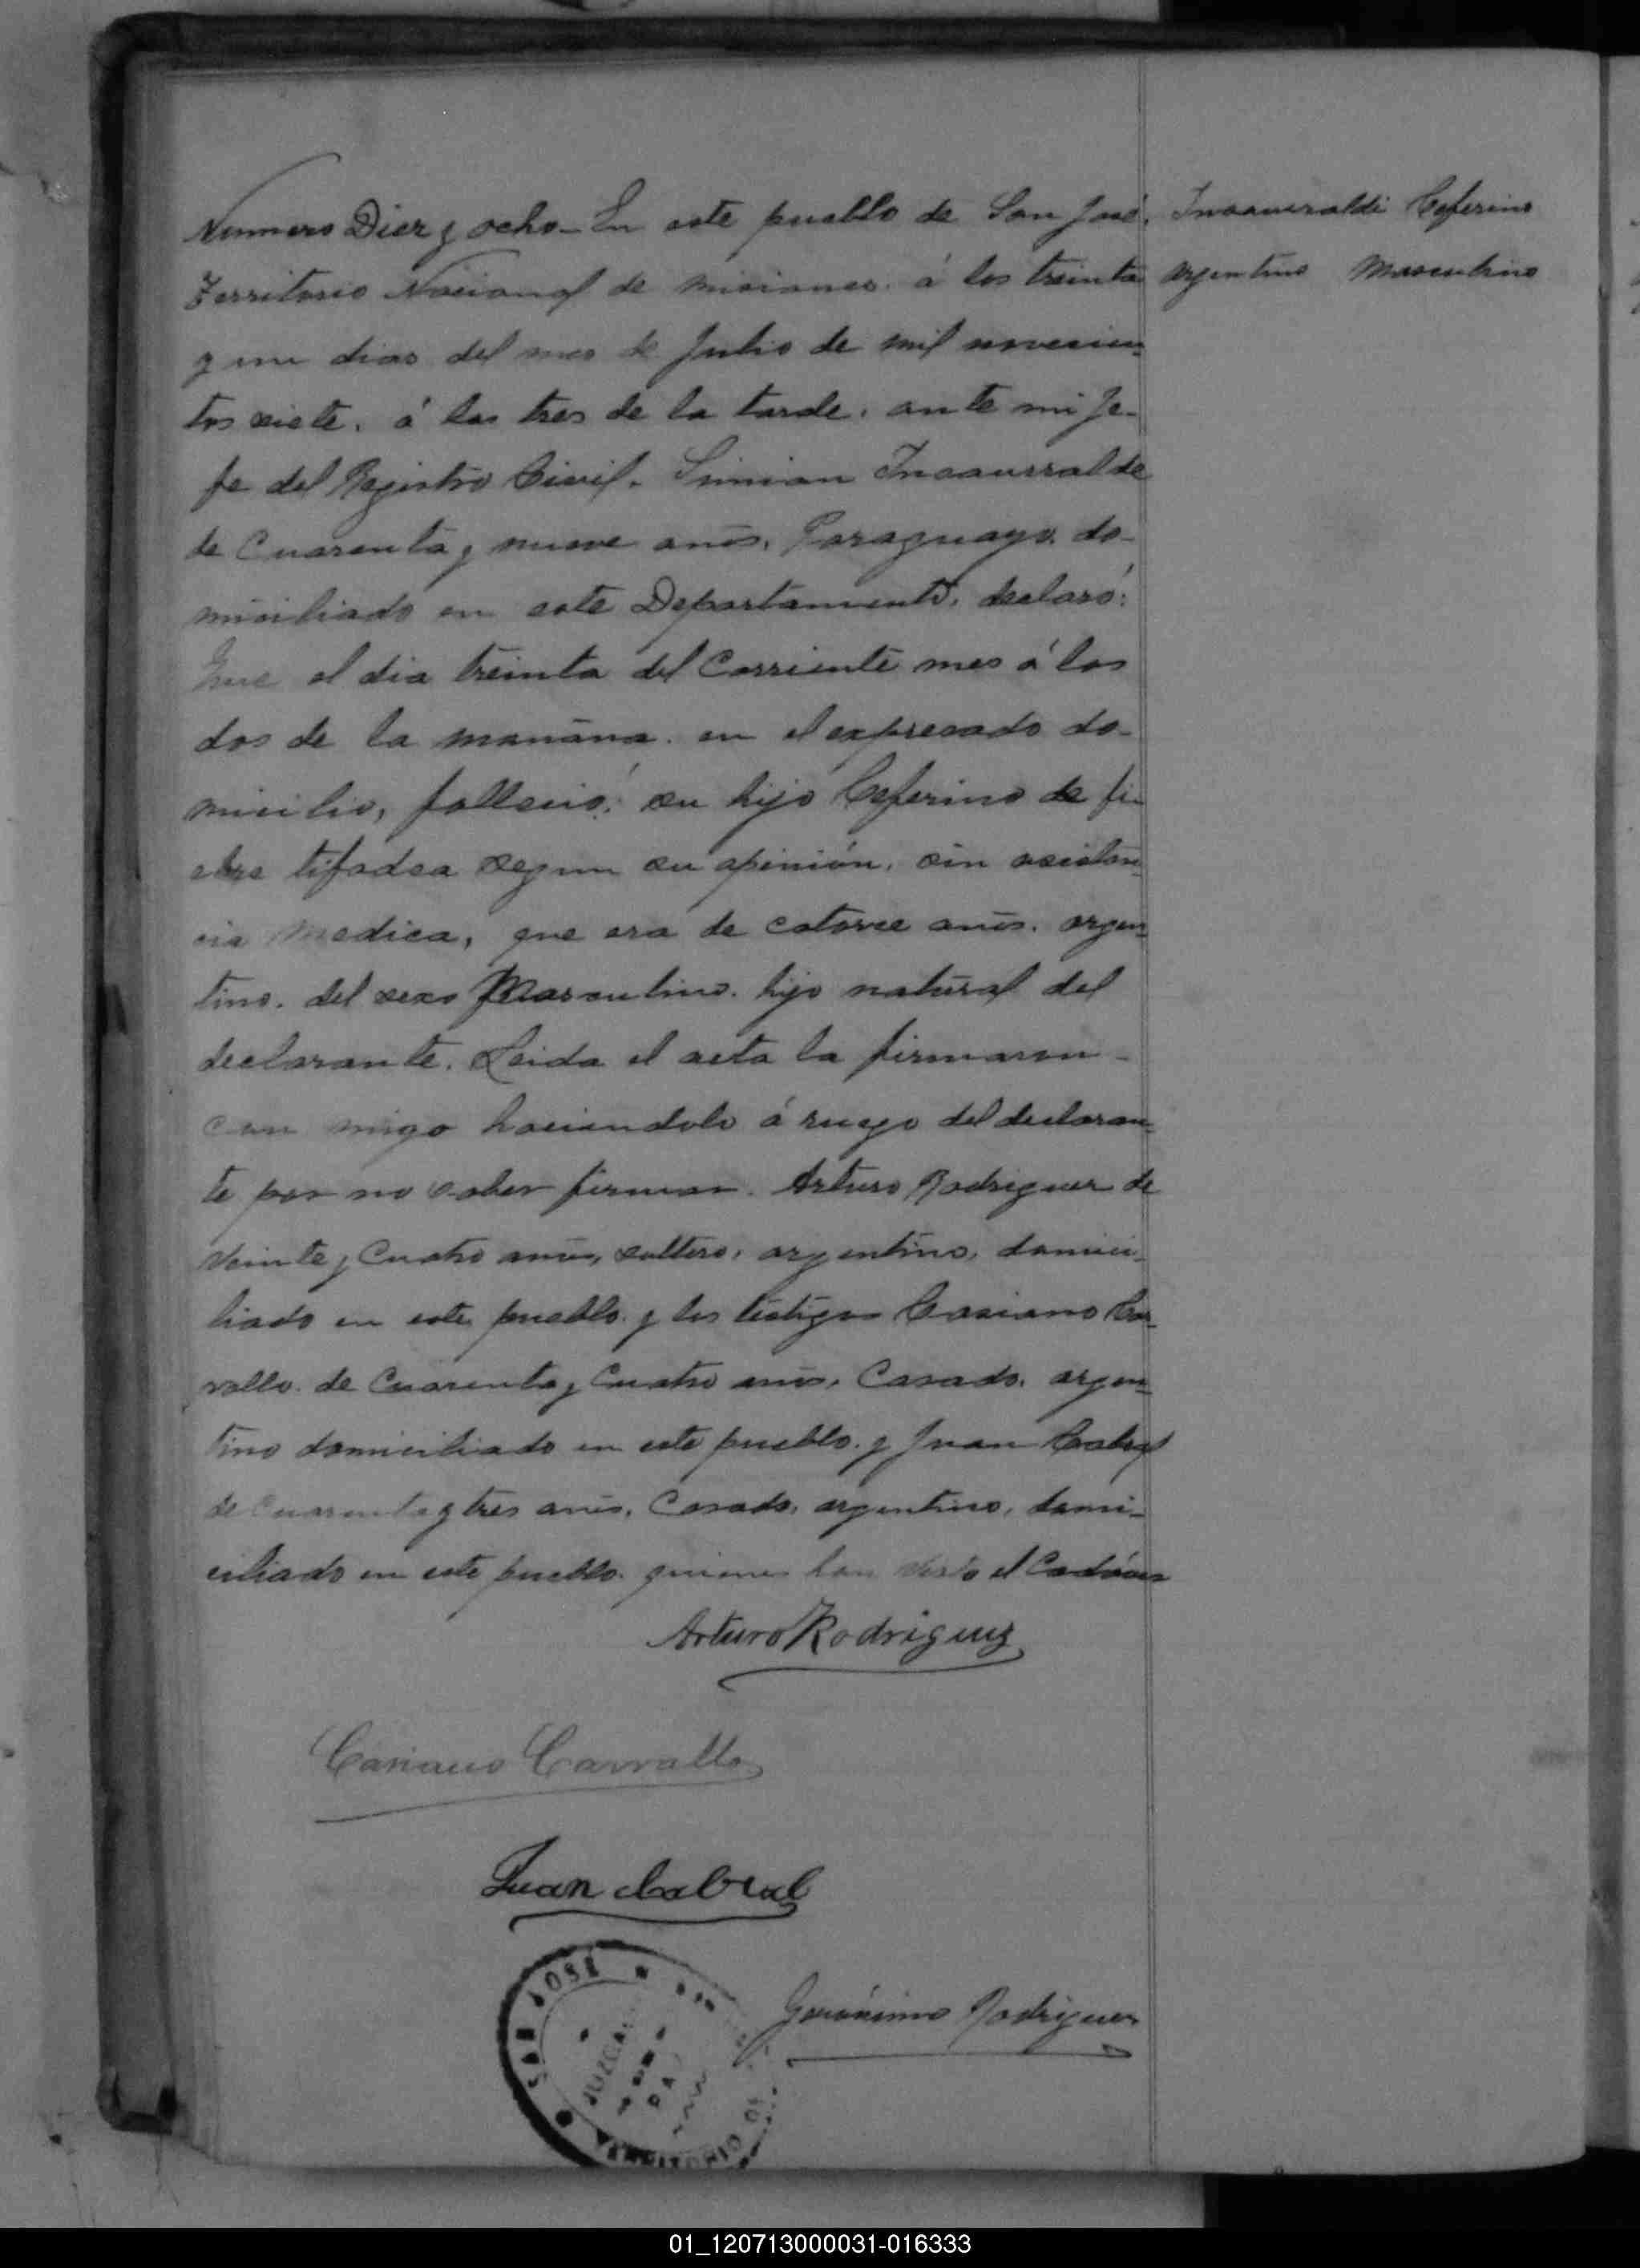 Numero Diez y ocho - En este pueblo de San José,
Territorio Nacional de Misiones á los treinta
y un dias del mes de Julio de mil novecien-
tos siete, á las tres de la tarde, ante mi Je-
fe del Registro Civil, Simian Incaurralde
de Cuarenta y nueve años, Paraguayo, do-
miciliado en este Departamento, declaró:
Que el dia treinta del Corriente mes á las
dos de la mañana en el expresado do-
micilio, falleció: su hijo Ceferino de fi-
ebre tifodea segun su opinión, sin asisten-
cia Medica, que era de catorce años, argen-
tino, del sexo Masculino, hijo natural del
declarante. Leida el acta la firmaron -
con migo haciendolo á ruego del declaran-
te por no saber firmar. Arturo Rodriguez de
Veinte y Cuatro años, soltero, argentino, domici-
liado en este pueblo y los testigos Casiano Car-
vallo de Cuarenta y Cuatro años, Casado, argen-
tino domiciliado en este pueblo y Juan Cabral
de Cuarenta y tres años, Casado, argentino, domi-
ciliado en este pueblo quienes han visto el Cadáver
Arturo Rodriguez
Casiano Carvallo
Juan Cabral
Gerónimo Rodriguez
Incaurralde Ceferino
argentino Masculino
SAN JOSE
JUZGA
PA
TERRITORIO
01_120713000031-016333